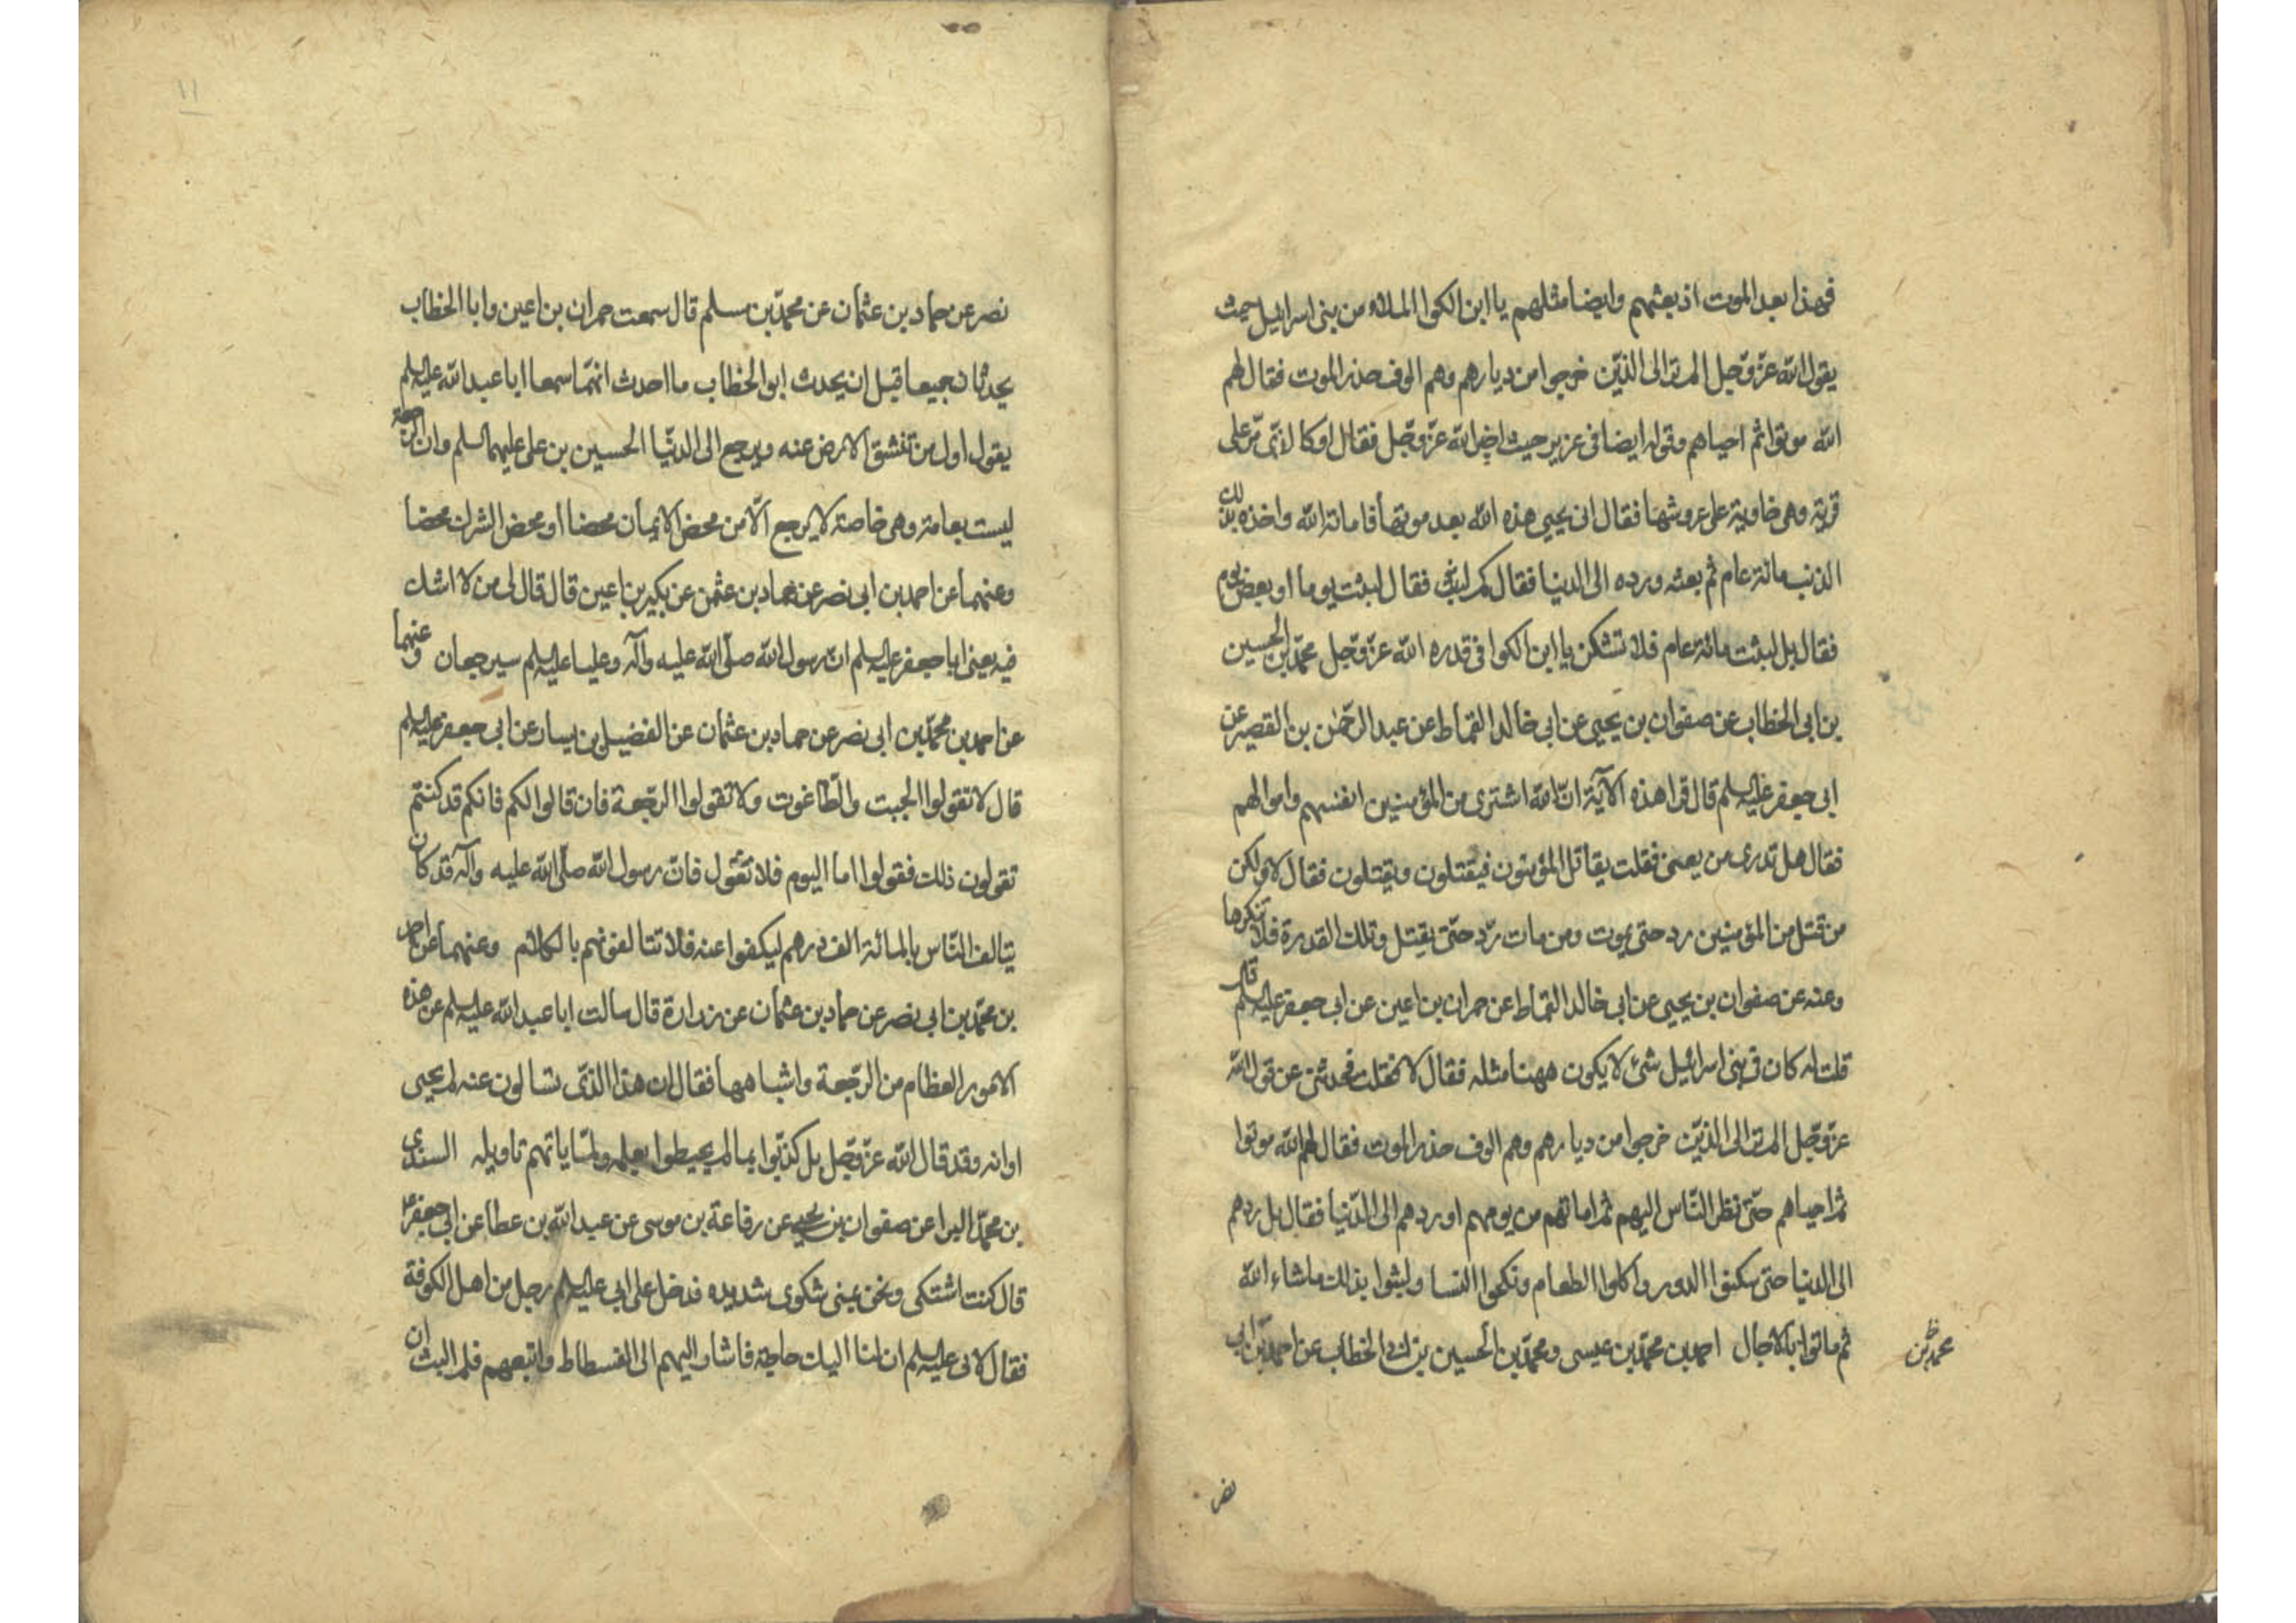 فهذا بعد الموت اذ بعثهم وايضا مثلهم يا ابن الكوا الملاء من بنى اسرائيل حيث
يقول الله عزّ وجّل الم تر الى الذيّن خرجوا من ديارهم وهم الوف حذر الموت فقال لهم
الله موتوا ثم احياهم وقوله ايضا فى عزير حيث اخبر الله عزّ وجّل فقال او كالذى مرّ على
قرية وهى خاوية على عروشها فقال انى يحيى هذه الله بعد موتها فاماته الله واخذه بذلك
الذنب مائة عام ثم بعثه ورده الى الدنيا فقال كم لبثت فقال لبثت يوما او بعض يوم
فقال بل لبثت مائة عام فلا تشكن يا ابن الكوا فى قدره الله عزّ وجّل محمّد بن الحسين
بن ابى الخطاب عن صفوان بن يحيى عن ابى خالد القماط عن عبد الرحمٰن بن القصير عن
ابى جعفر عليه السلم قال قرا هذه الآية انّ الله اشترى من المؤمنين انفسهم واموالهم
فقال هل تدرى من يعنى فقلت يقاتل المؤمنون فيقتلون ويقتلون فقال لا ولكن
من قتل من المؤمنين رد حتى يموت ومن مات ردّ حتّى يقتل وتلك القدرة فلا تنكرها
وعنه عن صفوان بن يحيى عن ابى خالد القماط عن حمران بن اعين عن ابى جعفر عليه السلم قال
قلت له كان فى بنى اسرائيل شئ لا يكون ههنا مثله فقال لا فقلت فحدثنى عن قول الله
عزّ وجّل الم تر الى الذيّن خرجوا من ديارهم وهم الوف حذر الموت فقال لهم الله موتوا
ثم احياهم حتّى نظر النّاس اليهم ثم اماتهم من يومهم او ردهم الى الدّنيا فقال بل ردهم
الى الدنيا حتى سكنوا الدور واكلوا الطعام ونكحوا النسا ولبثوا بذلك ماشاء الله
ثم ماتوا بالاجال احمد بن محمّد بن عيسى ومحمّد بن الحسين بن ابى الخطاب عن احمد بن ابى
محمد بن
نصر
١١
نصر عن حماد بن عثمان عن محمّد بن مسلم قال سمعت حمران بن اعين وابا الخطاب
يحدثان جميعا قبل ان يحدث ابو الخطاب ما احدث انهّما سمعا ابا عبد الله عليه السلم
يقول اول من تنشق الارض عنه ويرجع الى الدنّيا الحسين بن على عليهما السلم وان الرجعة
ليست بعامة وهى خاصة لا يرجع الّا من محض الايمان محضا او محض الشرك محضا
وعنهما عن احمد بن ابى نصر عن حماد بن عثمن عن بكير بن اعين قال قال لى من لا اشك
فيه يعنى ابا جعفر عليه السلم انّ رسول الله صلّى الله عليه وآله وعليا عليه السلم سيرجعان وعنهما
عن احمد بن محمّد بن ابى نصر عن حماد بن عثمان عن الفضيل بن يسار عن ابى جعفر عليه السلم
قال لا تقولوا الجبت والطّاغوت ولا تقولوا الرجّعة فان قالوا لكم فانكم قد كنتم
تقولون ذلك فقولوا اما اليوم فلا نقول فانّ رسول الله صلّى الله عليه وآله قد كان
يتالف النّاس بالمائة الف درهم ليكفوا عنه فلا تتالفونهم بالكلام وعنهما عن احمد
بن محمّد بن ابى نصر عن حماد بن عثمان عن زرارة قال سالت ابا عبد الله عليه السلم عن هذه
الامور العظام من الرجّعة واشباهها فقال ان هذا الذّى تسالون عنه لم يجيى
اوانه وقد قال الله عزّ وجّل بل كذبّوا بما لم يحيطوا بعلمه ولمّا ياتهم تاويله السندى
بن محمّد البزا عن صفوان بن يحيى عن رفاعة بن موسى عن عبد الله بن عطا عن ابى جعفر ع
قال كنت اشتكى ونحن بمنى شكوى شديده فدخل على ابى عليه السلم رجل من اهل الكوفة
فقال لابى عليه السلم ان لنا اليك حاجة فاشار اليهم الى الفسطاط واتبعهم فلم البث ان